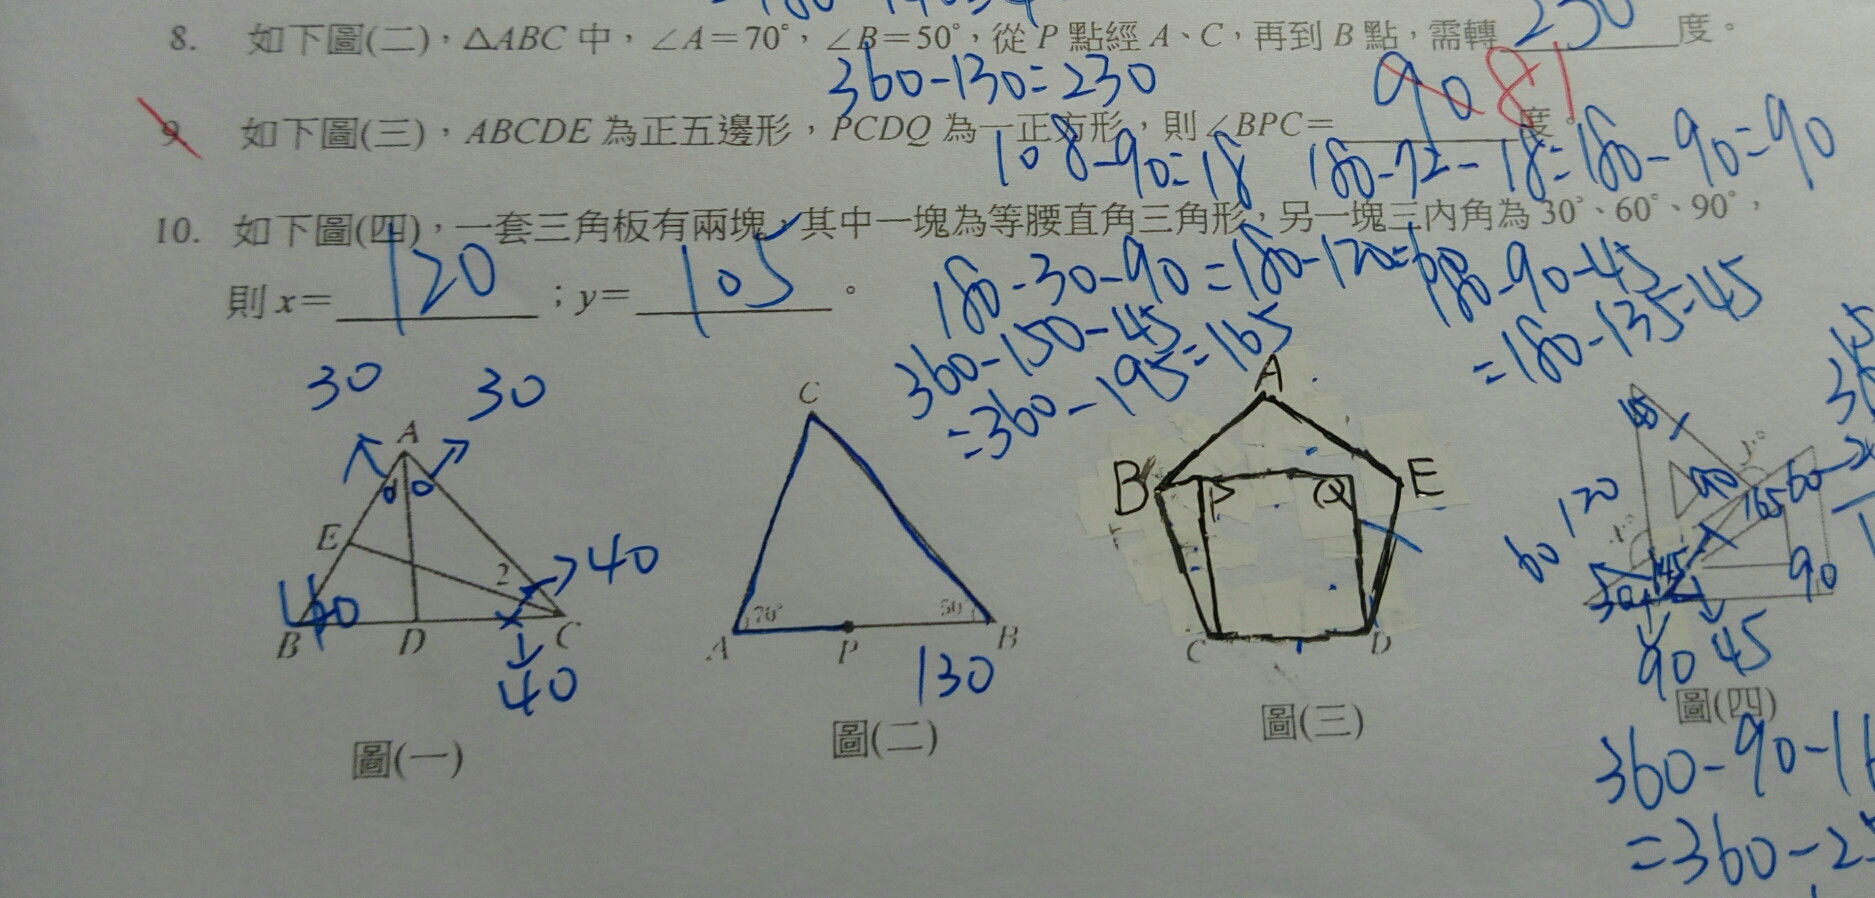 8. 如下圖(二)，△ABC 中，∠A＝70°，∠B＝50°，從 P 點經 A、C，再到 B 點，需轉 230 度。
360-130=230
90 81
9. 如下圖(三)，ABCDE 為正五邊形，PCDQ 為一正方形，則∠BPC＝ 度。
108-90=18 180-72-18=180-90=90
10. 如下圖(四)，一套三角板有兩塊，其中一塊為等腰直角三角形，另一塊三內角為 30°、60°、90°，
則 x＝ 120 ；y＝ 105 。
180-30-90=180-120=60
180-90-45
=180-135=45
360-150-45
=360-195=165
30 30
A
E
2
40
40
B D C
40
圖(一)
C
70° 50°
A P B
130
圖(二)
A
B P Q E
C D
圖(三)
y°
90
165
60
120
x°
60
30
45
90
90 45
圖(四)
360-90-1
=360-2